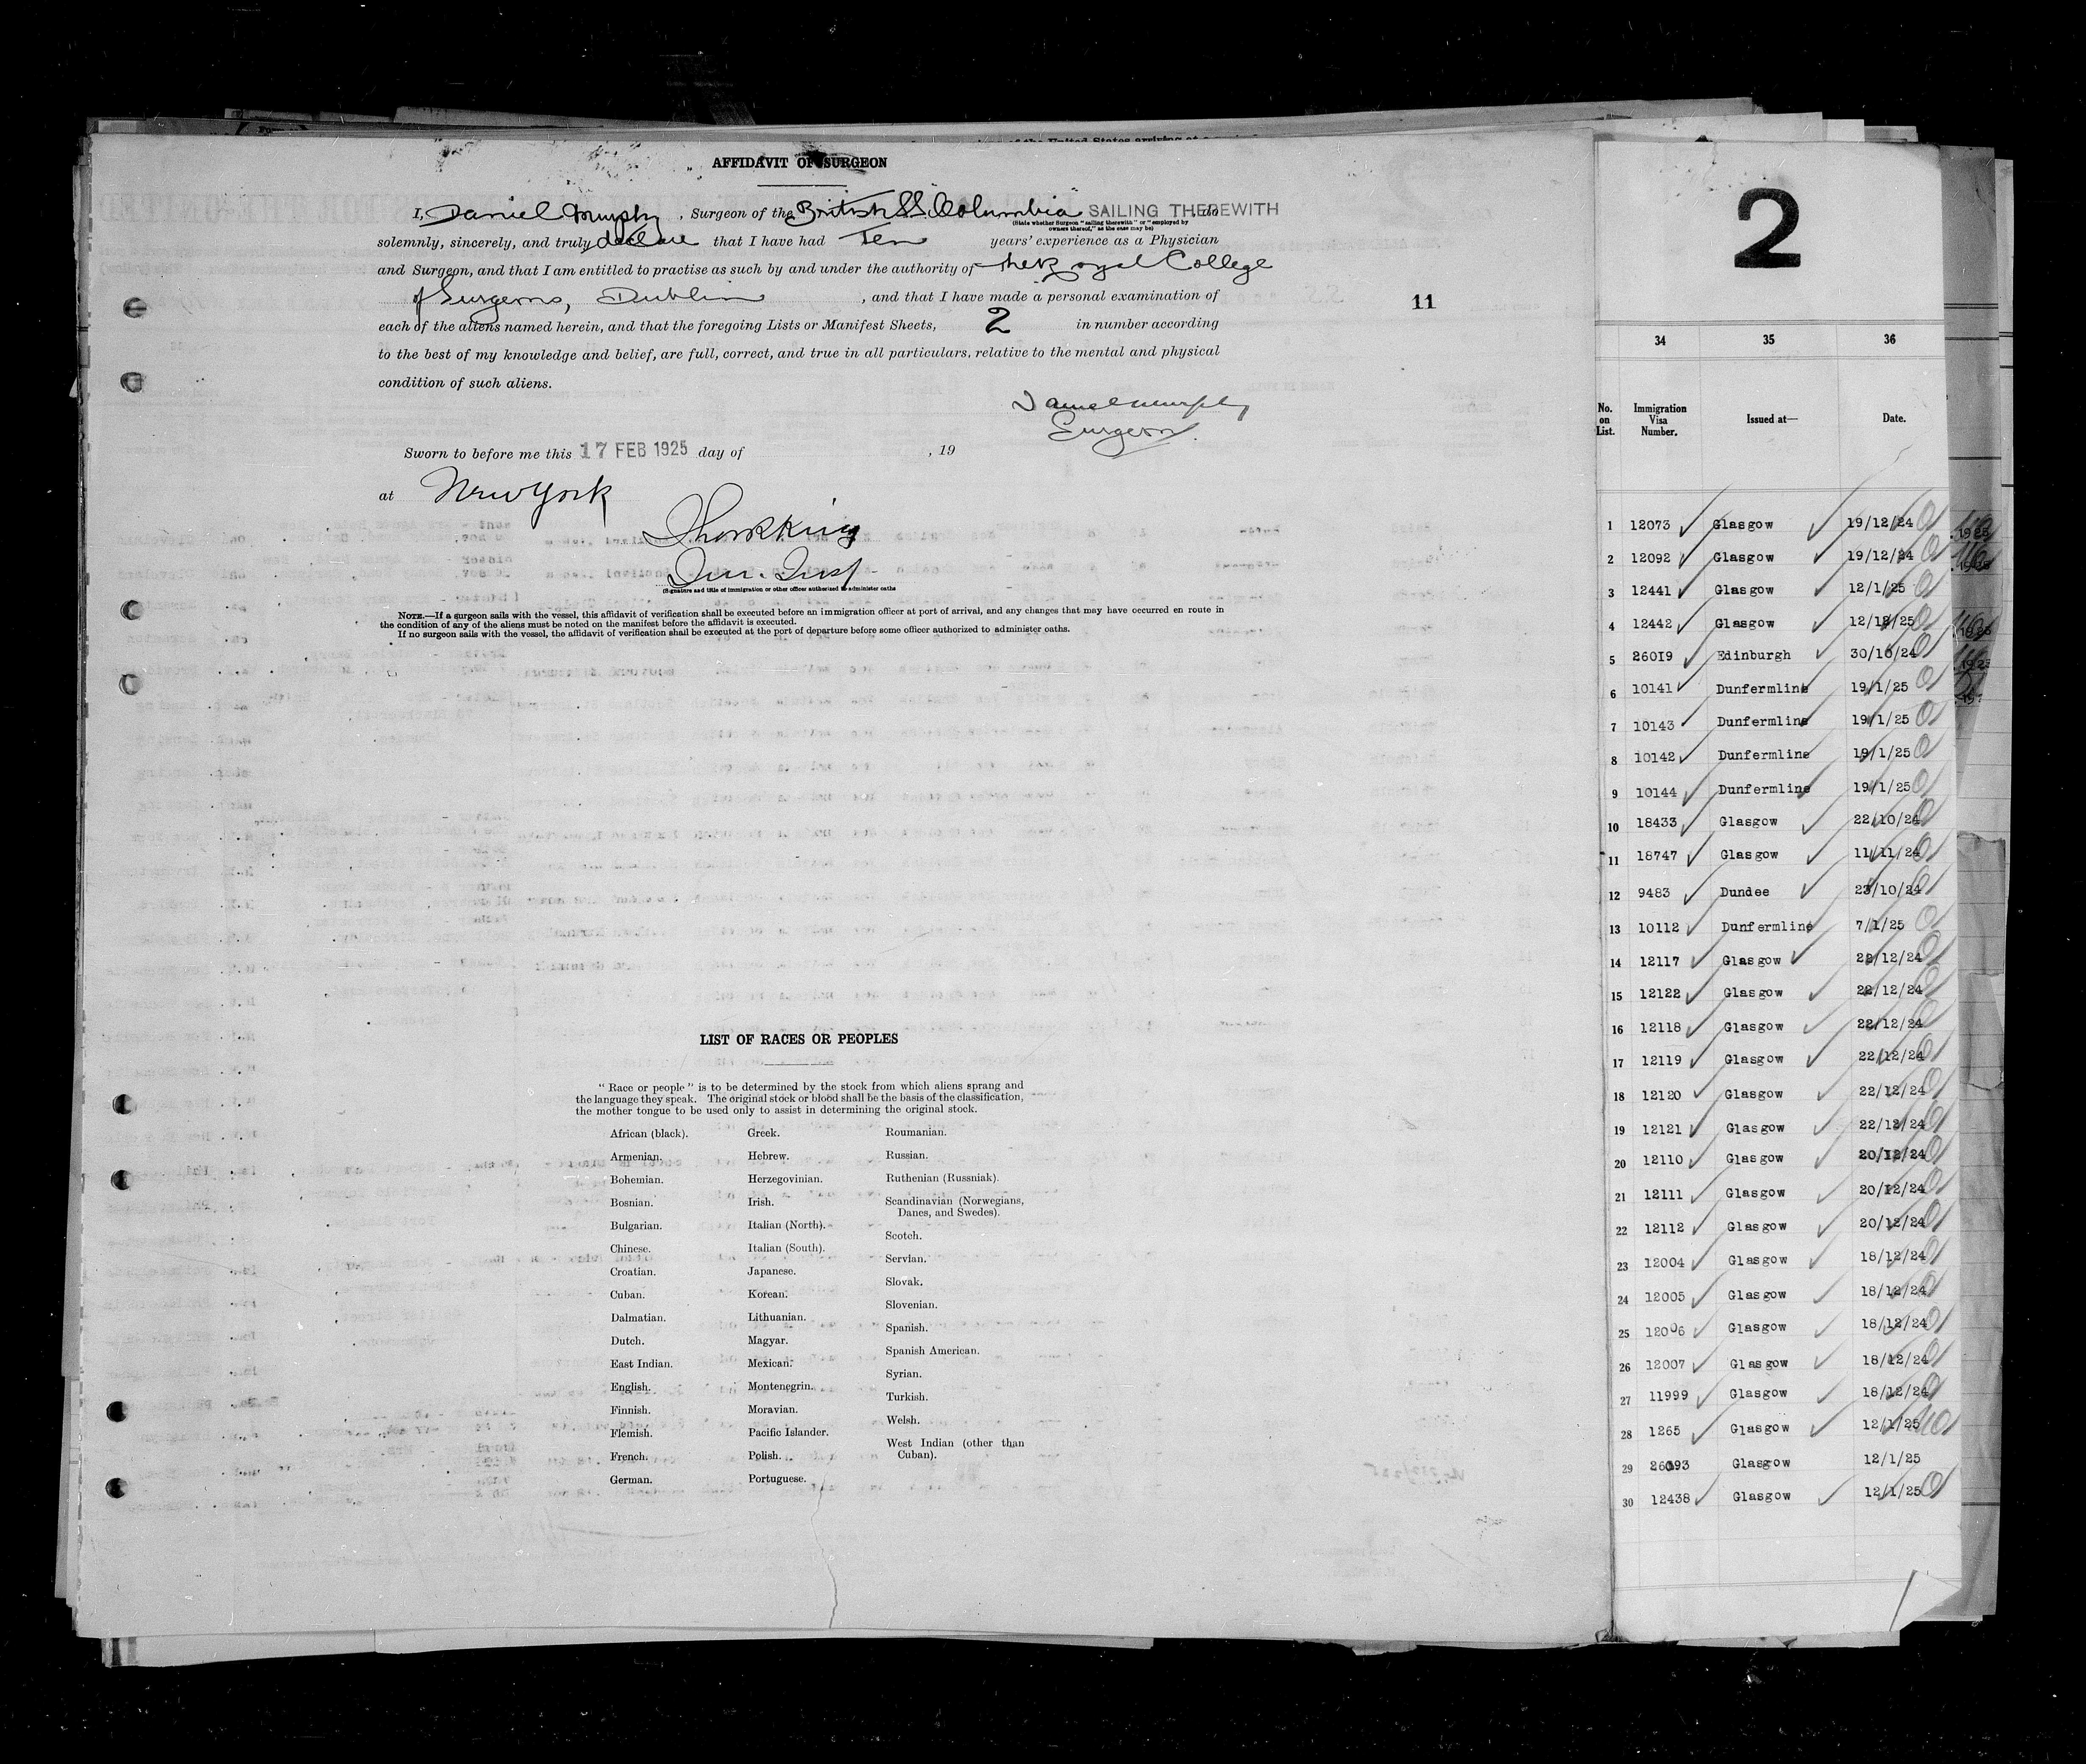 AFFIDAVIT OF SURGEON
I, Daniel Murphy, Surgeon of the British SS. "Columbia" SAILING THEREWITH, do
(State whether Surgeon "sailing therewith" or "employed by
owners thereof," as the case may be)
solemnly, sincerely, and truly declare that I have had Ten years' experience as a Physician
and Surgeon, and that I am entitled to practise as such by and under the authority of the Royal College
of Surgeons, Dublin, and that I have made a personal examination of
each of the aliens named herein, and that the foregoing Lists or Manifest Sheets, 2 in number according
to the best of my knowledge and belief, are full, correct, and true in all particulars, relative to the mental and physical
condition of such aliens.
Daniel Murphy
Surgeon.
Sworn to before me this 17 FEB 1925 day of , 19
at New York
Imm. Insp.
(Signature and title of immigration or other officer authorized to administer oaths
NOTE.—If a surgeon sails with the vessel, this affidavit of verification shall be executed before an immigration officer at port of arrival, and any changes that may have occurred en route in
the condition of any of the aliens must be noted on the manifest before the affidavit is executed.
If no surgeon sails with the vessel, the affidavit of verification shall be executed at the port of departure before some officer authorized to administer oaths.
11
LIST OF RACES OR PEOPLES
"Race or people" is to be determined by the stock from which aliens sprang and
the language they speak. The original stock or blood shall be the basis of the classification,
the mother tongue to be used only to assist in determining the original stock.
African (black).
Armenian.
Bohemian.
Bosnian.
Bulgarian.
Chinese.
Croatian.
Cuban.
Dalmatian.
Dutch.
East Indian.
English.
Finnish.
Flemish.
French.
German.
Greek.
Hebrew.
Herzegovinian.
Irish.
Italian (North).
Italian (South).
Japanese.
Korean.
Lithuanian.
Magyar.
Mexican.
Montenegrin.
Moravian.
Pacific Islander.
Polish.
Portuguese.
Roumanian.
Russian.
Ruthenian (Russniak).
Scandinavian (Norwegians,
Danes, and Swedes).
Scotch.
Servian.
Slovak.
Slovenian.
Spanish.
Spanish American.
Syrian.
Turkish.
Welsh.
West Indian (other than
Cuban).
2
34 35 36
No. on List. Immigration Visa Number. Issued at— Date.
1 12073 Glasgow 19/12/24
2 12092 Glasgow 19/12/24
3 12441 Glasgow 12/1/25
4 12442 Glasgow
5 26019 Edinburgh 30/10/24
6 10141 Dunfermline 19/1/25
7 10143 Dunfermline 19/1/25
8 10142 Dunfermline 19/1/25
9 10144 Dunfermline 19/1/25
10 18433 Glasgow 22/10/24
11 18747 Glasgow 11/11/24
12 9483 Dundee 23/10/24
13 10112 Dunfermline 7/1/25
14 12117 Glasgow 22/12/24
15 12122 Glasgow 22/12/24
16 12118 Glasgow 22/12/24
17 12119 Glasgow 22/12/24
18 12120 Glasgow 22/12/24
19 12121 Glasgow 22/12/24
20 12110 Glasgow 20/12/24
21 12111 Glasgow 20/12/24
22 12112 Glasgow 20/12/24
23 12004 Glasgow 18/12/24
24 12005 Glasgow 18/12/24
25 12006 Glasgow 18/12/24
26 12007 Glasgow 18/12/24
27 11999 Glasgow 18/12/24
28 1265 Glasgow 12/1/25
29 Glasgow 12/1/25
30 12438 Glasgow 12/1/25